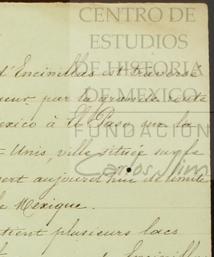 CENTRO DE
ESTUDIOS
DE HISTORIA
DE MEXICO
FUNDACION
Carlos Slim
d'Encinillas est traversé
par la grande route
Mexico à El Paso sur la
Unis, ville située sur le
sert aujourd'hui de limite
le Mexique.
tient plusieurs lacs